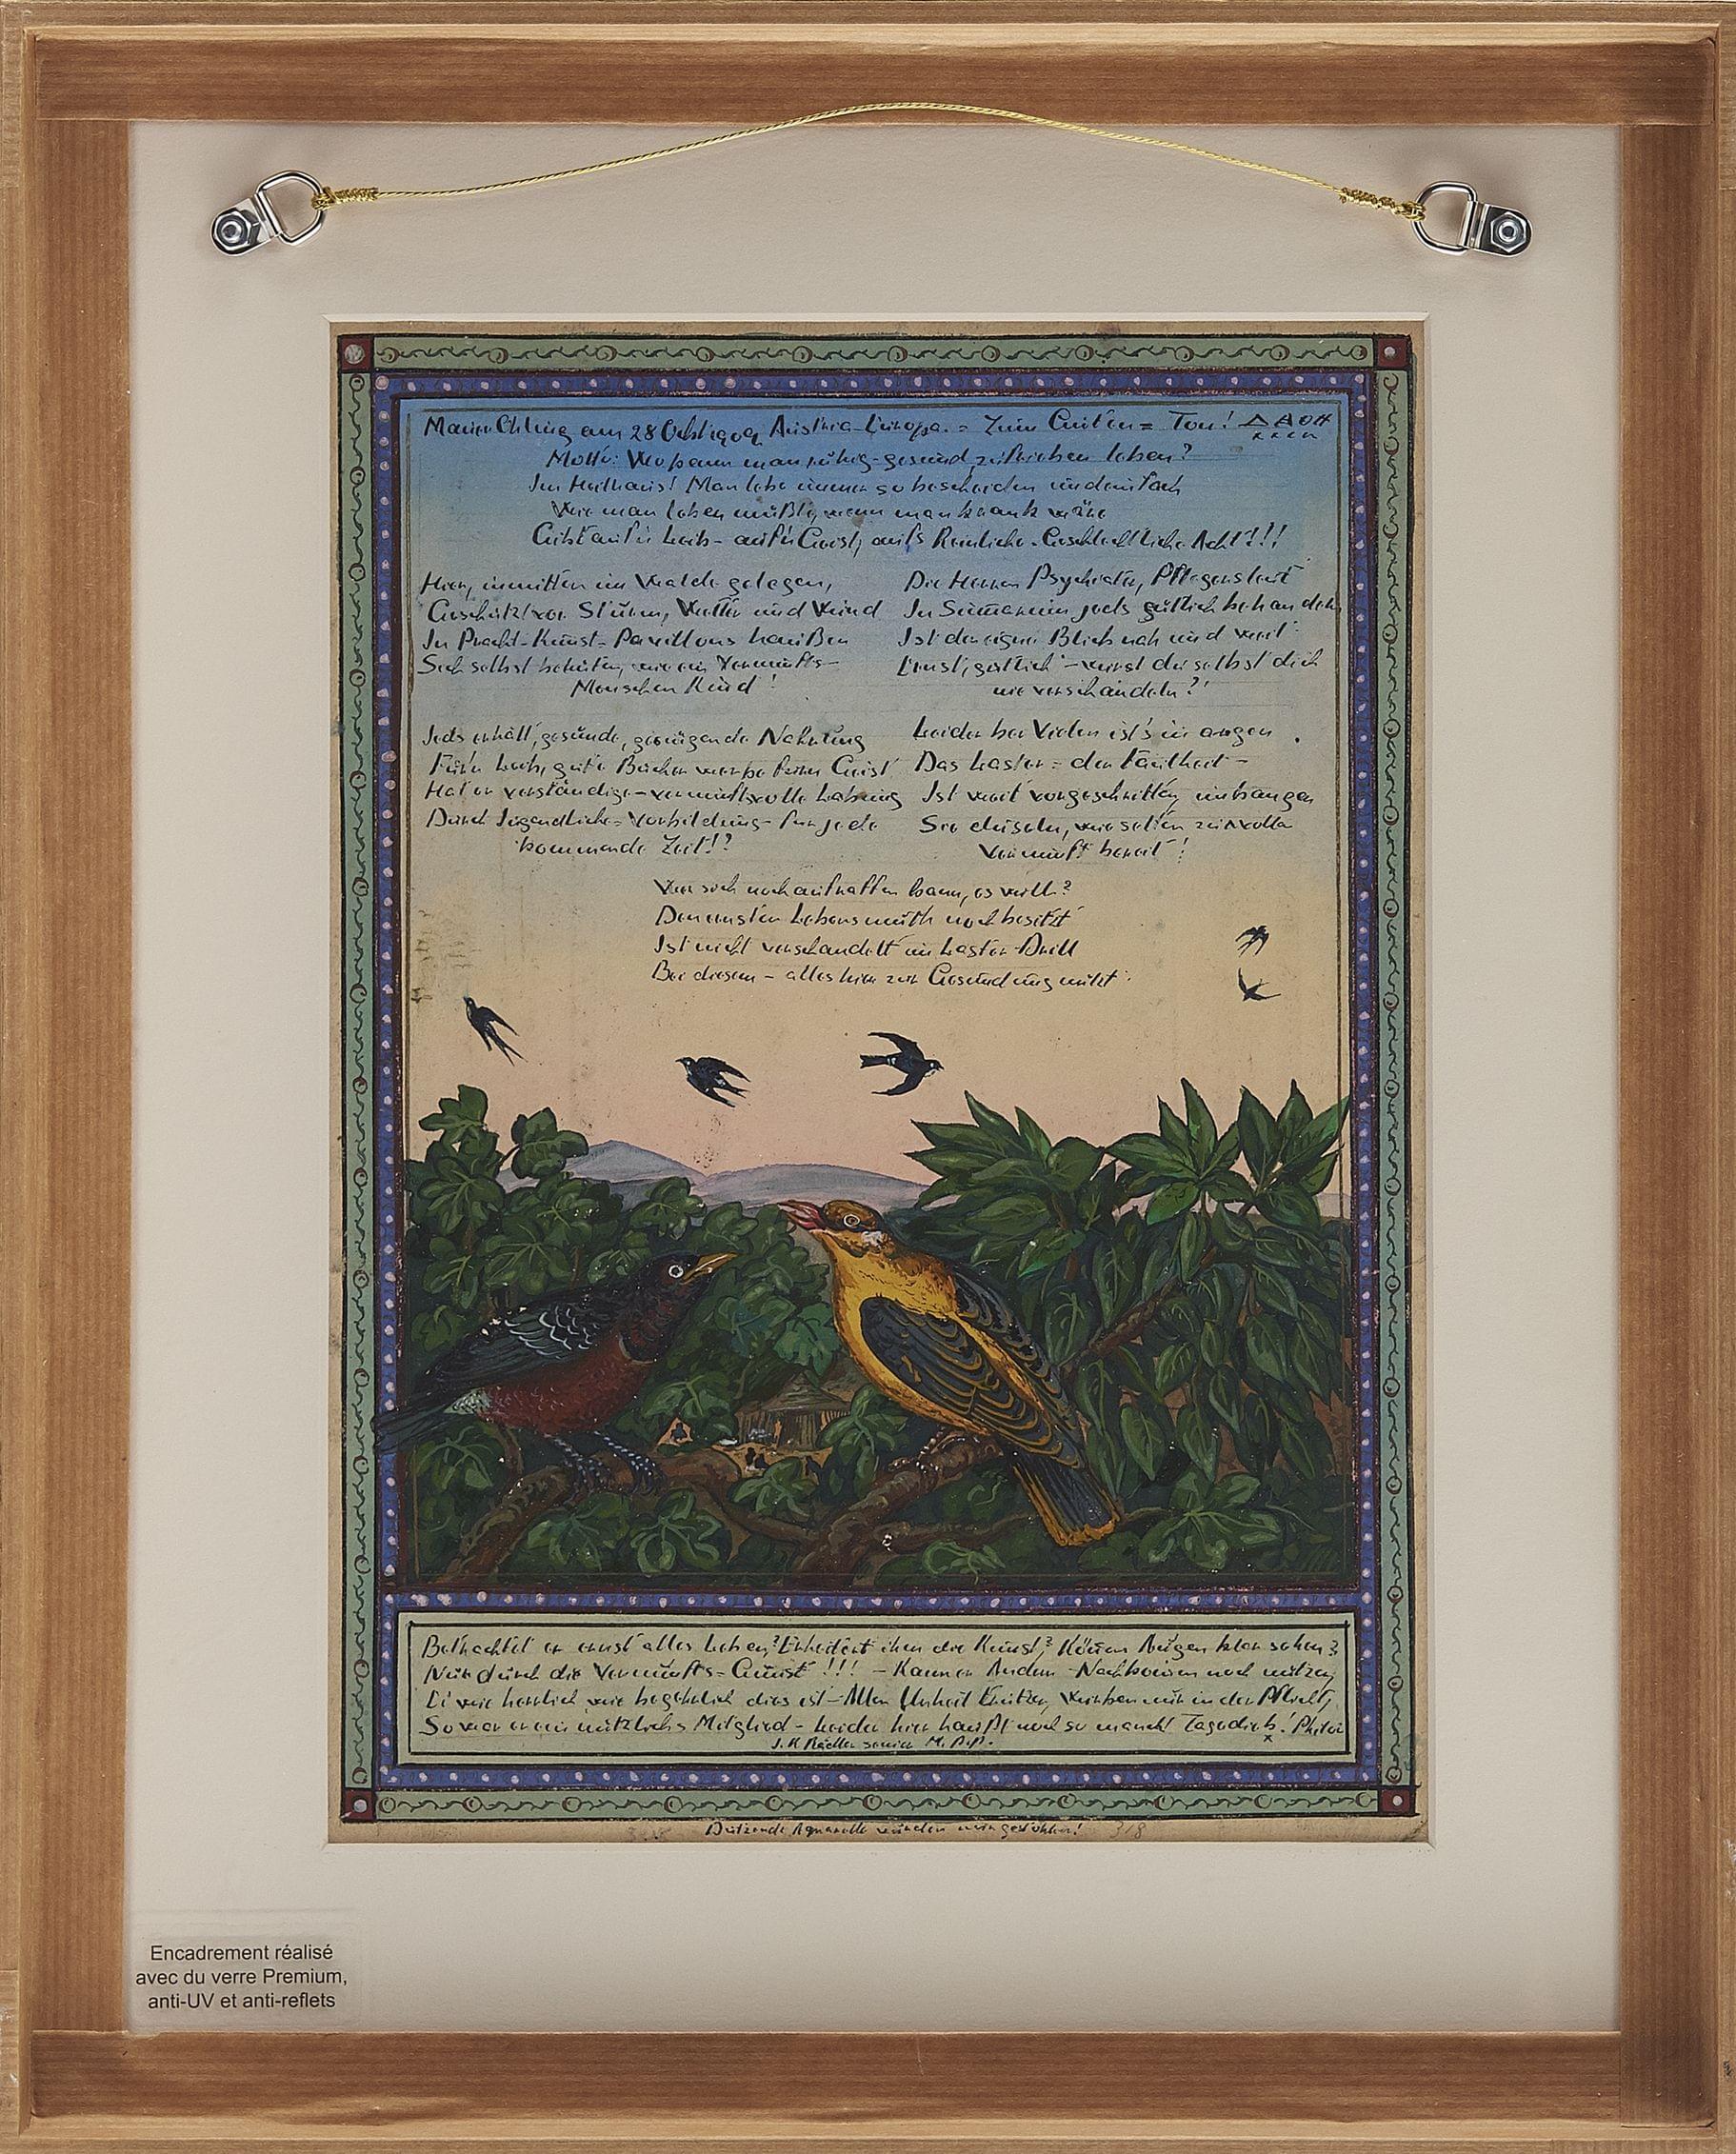 Mauer Öhling am 28 Okt 1909 Austria-Europa. = Zum Guten = Ton!
Motto: man ruhig-gesund zufrieden leben?
Im Heilhaus! Man lebe immer so bescheiden und einfach
Wie man leben müßte, wenn man krank wäre
Gibt auf'n Leib- auf'n Geist, auf's Reinliche-Geschlechtliche Acht!!!
Hier, inmitten im Walde gelegen,
Geschützt vor Sturm, Wetter und Wind
In Pracht-Kunst-Pavillons
Sich selbst behüten, wie ein Vernunfts-
Menschen Kind!
Die Herren Psychiater, Pflegersleut
In Summarum jeds gütlich behandeln
Ist der eigne Blick nah und weit
Ernst, gütlich - wirst du selbst dich
nie verschandeln?!
Jeds erhält, gesunde, genügende Nahrung
Für'n Leib, gute Bücher Geist
Hat er verständige-vernunftsvolle Labung
Durch Jugendliche-Vorbildung- für jede
kommende Zeit!?
Leider bei Vielen ist's
Das Laster = der Faulheit -
Ist weit vorgeschritten,
Sie duseln, wie selten zur voller
Vernunft bereit!
Wer sich noch aufraffen kann, es will?
Den ernsten Lebensmuth noch besitzt
Ist nicht verschandelt im Laster-Drill
Bei diesem - alles hier zur Gesundung nützt.
Betrachtet er ernst alles Leben? Erheitert ihm die Kunst? Können Augen klar sehen?
Nur durch die Vernunfts-Gunst!!! - Kann er Andern Nachkomen noch nützen
Ei wie herrlich wie begehrlich dies ist - Allen nur in der Pflicht,
So wär er ein nützlichs Mitglied - leider hier haußt noch so manch! Tagedieb!
J. K Rädler senior
Dutzende Aquarelle wurden mir gestohlen! 318
Encadrement réalisé
avec du verre Premium,
anti-UV et anti-reflets